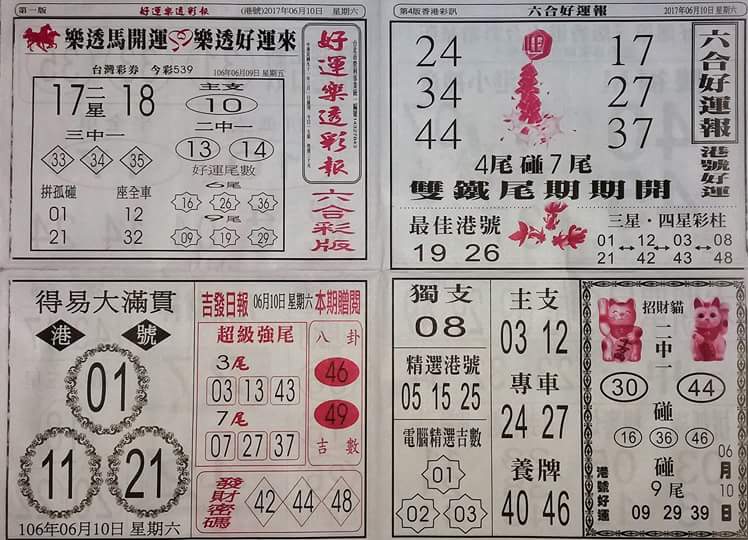 第一版
好運樂透彩報
(港號)2017年06月10日 星期六
樂透馬開運 樂透好運來
台灣彩券 今彩539
106年06月09日 星期五
17 二星 18
主支
10
三中一
33 34 35
二中一
13 14
好運尾數
6尾
16 26 36
9尾
09 19 29
拼孤碰
座全車
01 12
21 32
好運樂透彩報
六合彩版
第4版香港彩訊
六合好運報
2017年06月10日 星期六
24 17
34 27
44 37
4尾碰7尾
雙鐵尾期期開
六合好運報
港號好運
最佳港號
19 26
三星·四星彩柱
01 12 03 08
21 42 43 48
得易大滿貫
港 號
01
11 21
106年06月10日 星期六
吉發日報 06月10日 星期六 本期贈閱
超級強尾
3尾
03 13 43
7尾
07 27 37
八卦
46
49
吉數
發財密碼
42 44 48
獨支
08
精選港號
05 15 25
電腦精選吉數
01
02 03
主支
03 12
專車
24 27
養牌
40 46
招財貓
二中一
30 44
碰
16 36 46
碰
9尾
09 29 39
港號好運
06月10日